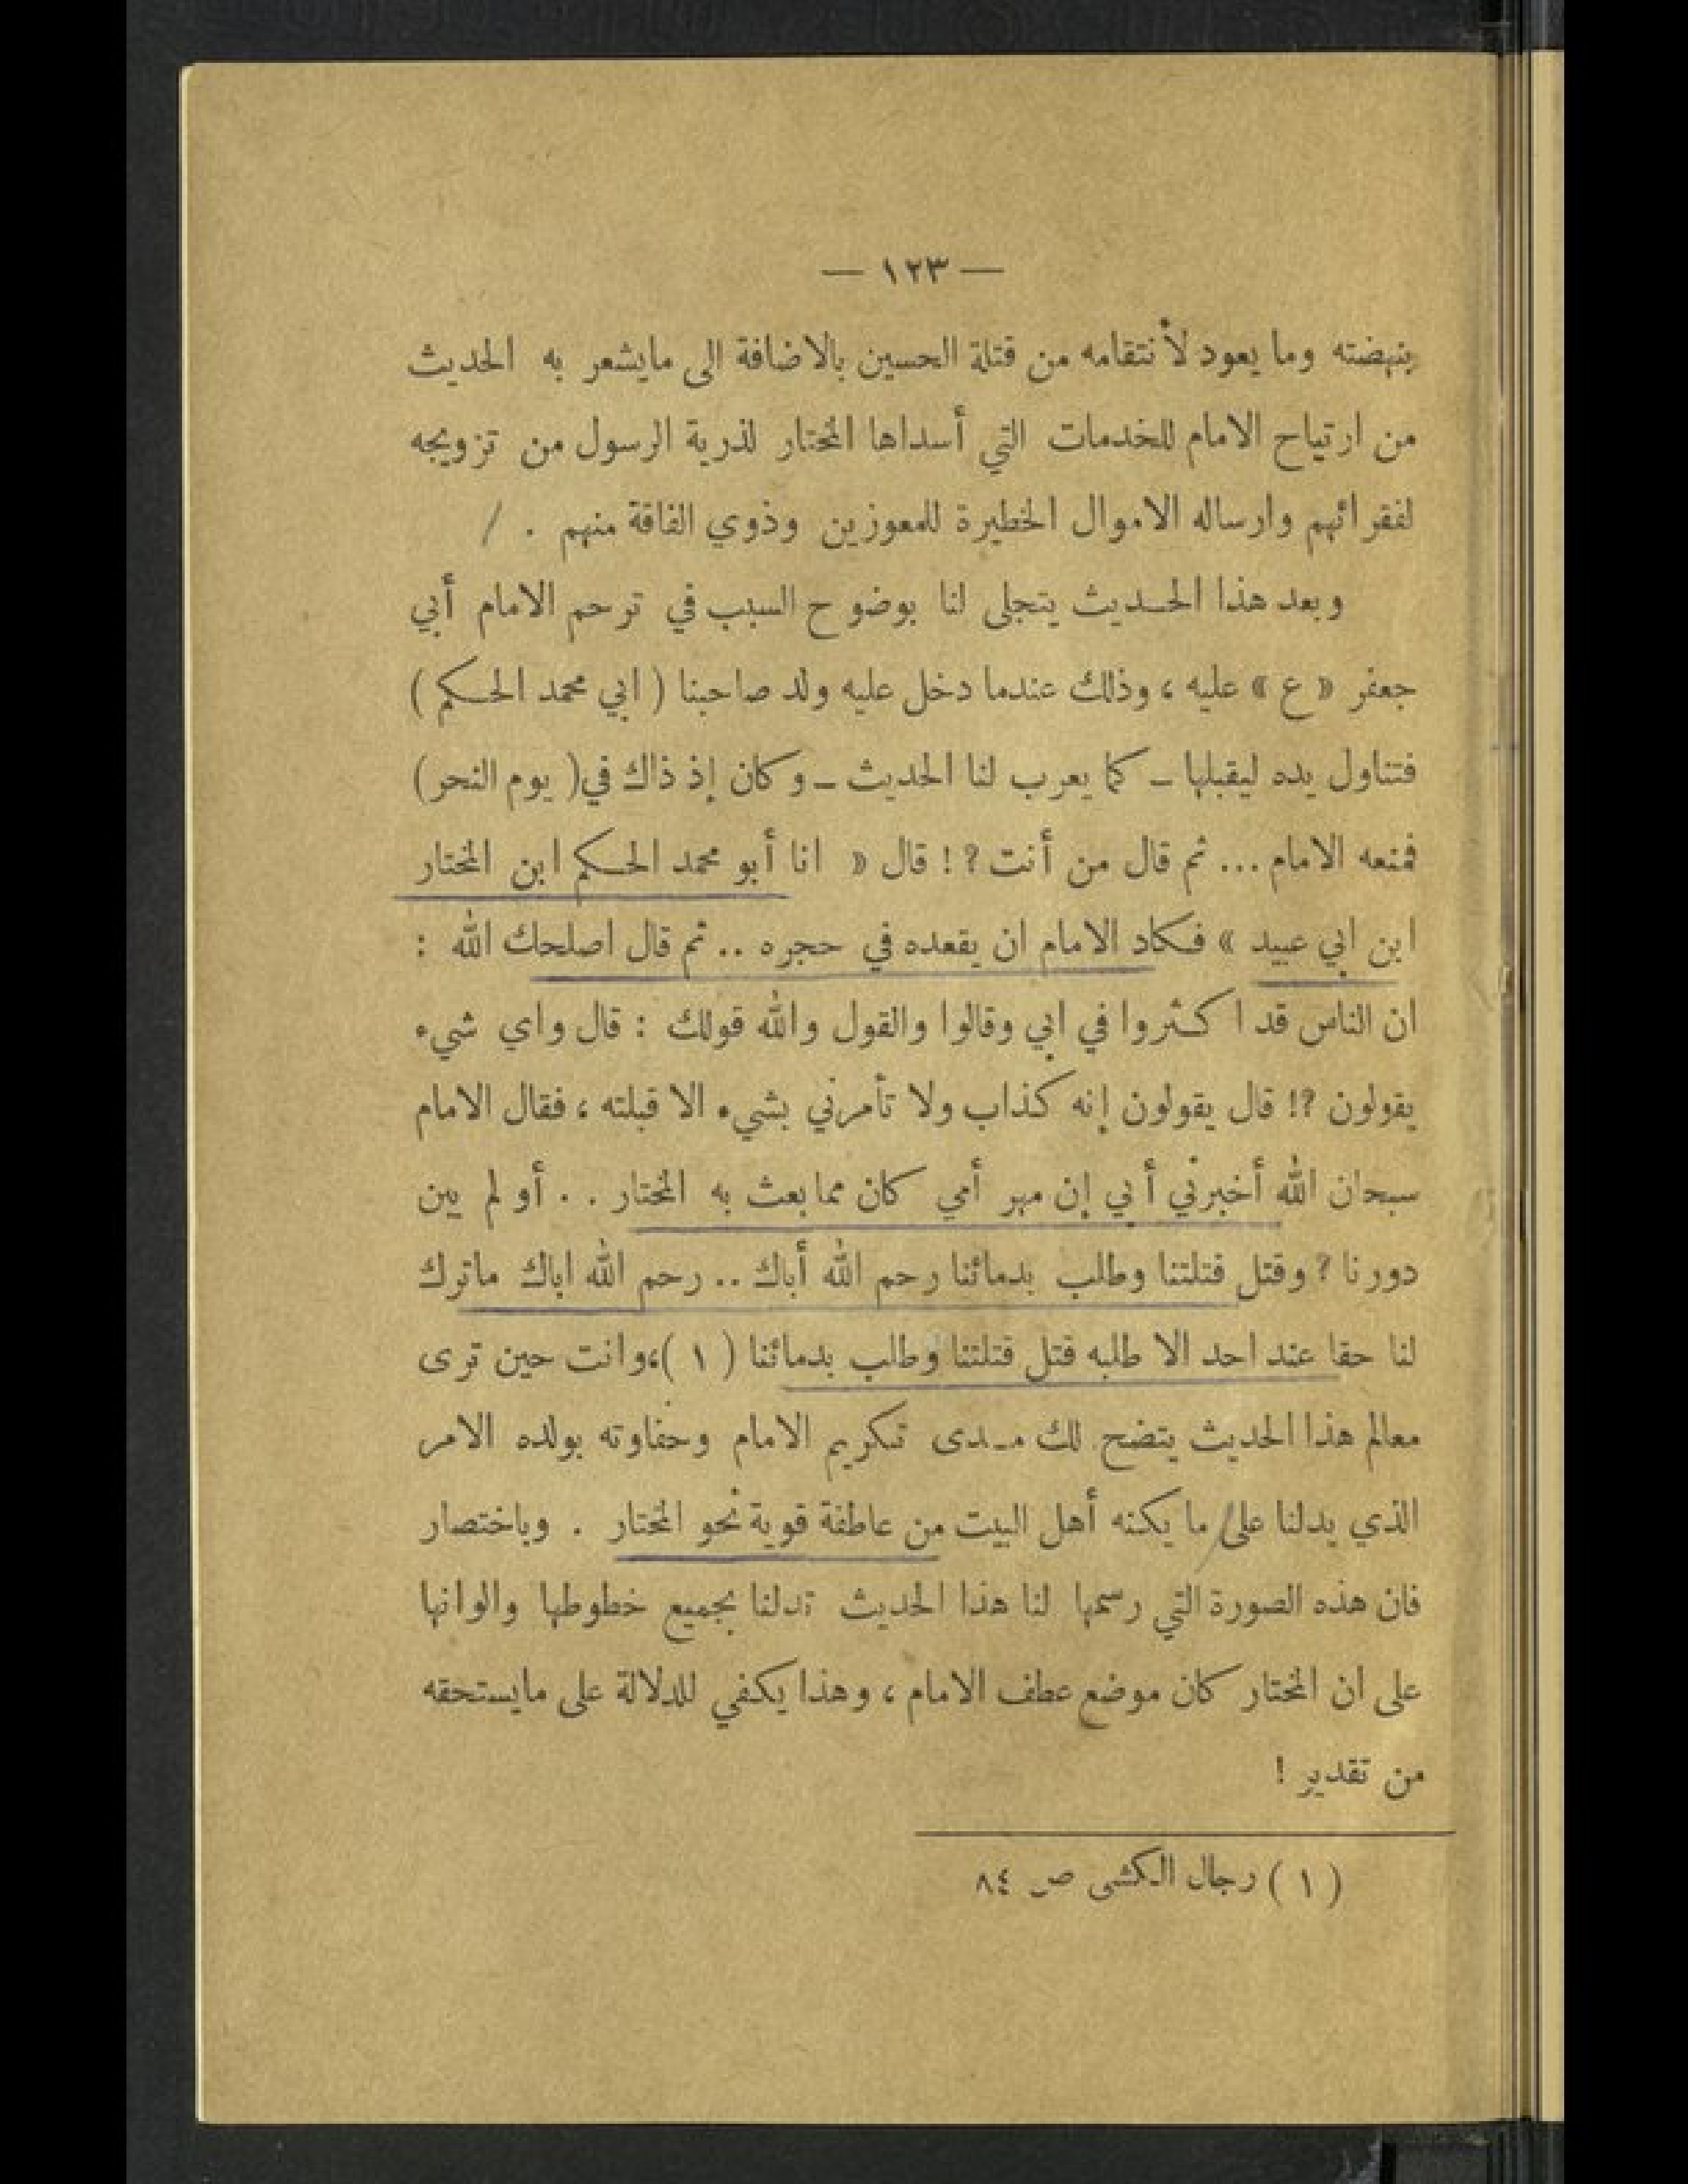 — ١٢٣ —
بنهضته وما يعود لأنتقامه من قتلة الحسين بالاضافة الى مايشعر به الحديث
من ارتياح الامام للخدمات التي أسداها المختار لذرية الرسول من تزويجه
لفقرائهم وارساله الاموال الخطيرة للمعوزين وذوي الفاقة منهم .
وبعد هذا الحـديث يتجلى لنا بوضوح السبب في ترحم الامام أبي
جعفر « ع » عليه ، وذلك عندما دخل عليه ولد صاحبنا ( ابي محمد الحـكم )
فتناول يده ليقبلها ـ كما يعرب لنا الحديث ـ وكان إذ ذاك في ( يوم النحر )
فمنعه الامام ... ثم قال من أنت ? ! قال « انا أبو محمد الحـكم ابن المختار
ابن ابي عبيد » فـكاد الامام ان يقعده في حجره .. ثم قال اصلحك الله :
ان الناس قد اكـثروا في ابي وقالوا والقول والله قولك : قال واي شيء
يقولون ?! قال يقولون إنه كذاب ولا تأمرني بشيء الا قبلته ، فقال الامام
سبحان الله أخبرني أبي إن مهر أمي كان مما بعث به المختار . . أو لم يبن
دورنا ? وقتل قتلتنا وطلب بدمائنا رحم الله أباك .. رحم الله اباك ماترك
لنا حقا عند احد الا طلبه قتل قتلتنا وطلب بدمائنا ( ١ )،وانت حين ترى
معالم هذا الحديث يتضح لك مـدى تـكريم الامام وحفاوته بولده الامر
الذي يدلنا على ما يكنه أهل البيت من عاطفة قوية نحو المختار . وباختصار
فان هذه الصورة التي رسمها لنا هذا الحديث تدلنا بجميع خطوطها والوانها
على ان المختار كان موضع عطف الامام ، وهذا يكفي للدلالة على مايستحقه
من تقدير !
( ١ ) رجال الـكشى ص ٨٤